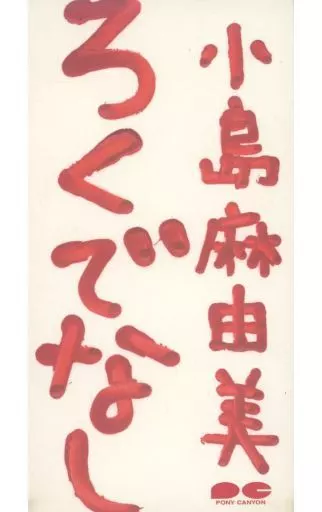 小島麻由美
ろくでなし
PC
PONY CANYON